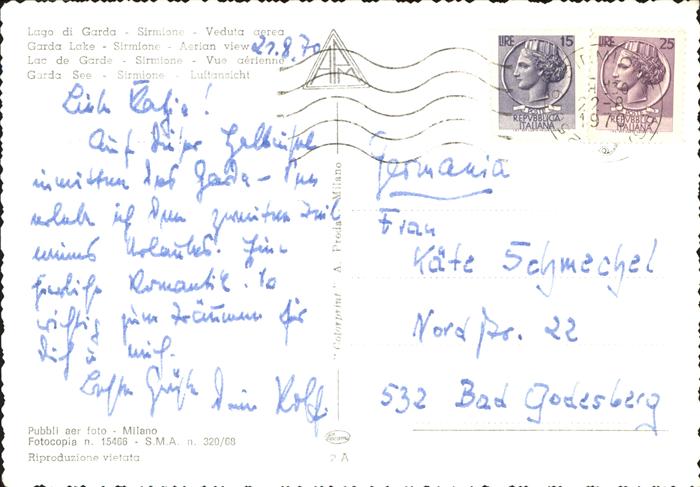 Lago di Garda - Sirmione - Veduta aerea
Garda Lake - Sirmione - Aerian view
Lac de Garde - Sirmione - Vue aérienne
Garda See - Sirmione - Luftansicht
21.8.70
Auf dieser Halbinsel
inmitten des Garda-Sees
erlebe ich den zweiten Teil
meines Urlaubs. Eine
herrliche Romantik. So
richtig zum Träumen für
Dich u. mich.
Grüße Dein Rolf.
Pubbli aer foto - Milano
Fotocopia n. 15466 - S.M.A. n. 320/68
Riproduzione vietata
2 A
"Colorprint" A. Preda - Milano
LIRE 15
REPVBBLICA
ITALIANA
LIRE 25
REPVBBLICA
ITALIANA
Germania
Frau
Käte Schmechel
Nordstr. 22
532 Bad Godesberg